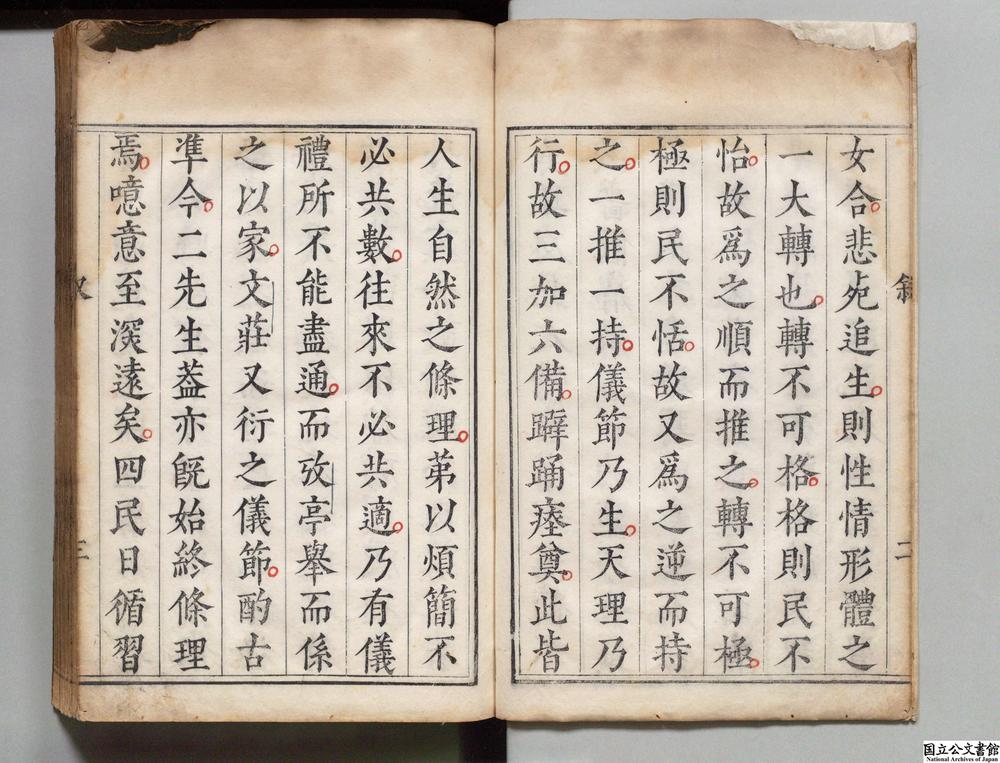 女合悲处追生則性情形體之
一大轉也轉不可格格則民不
怡故爲之順而推之轉不可極
極則民不恬故又爲之逆而持
之一推一持儀節乃生天理乃
行故三加六備躃踊瘞奠此皆
人生自然之條理苐以煩簡不
必共數往來不必共適乃有儀
禮所不能盡通而攷亭舉而係
之以家文莊又衍之儀節酌古
凖今二先生葢亦旣始終條理
焉噫意至深遠矣四民日循習
敘
二
三
国立公文書館
National Archives of Japan